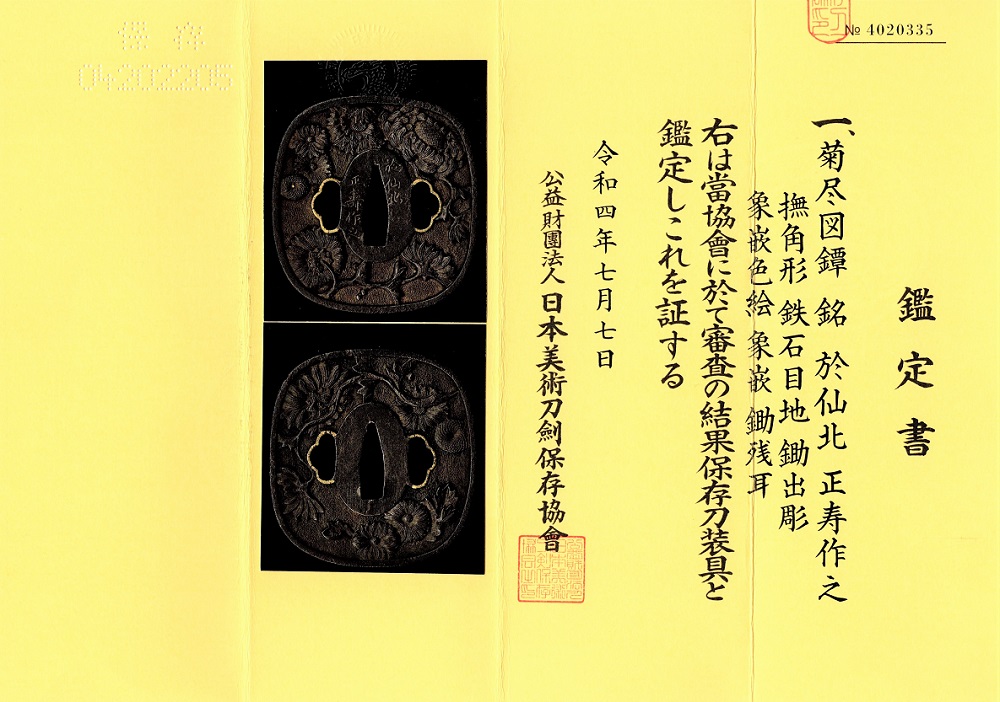 № 4020335
鑑定書
一、菊尽図鐔 銘 於仙北 正寿作之
撫角形 鉄石目地 鋤出彫
象嵌色絵 象嵌 鋤残耳
右は當協會に於て審査の結果保存刀装具と
鑑定しこれを証する
令和四年七月七日
公益財團法人 日本美術刀劍保存協會
保存
04202205